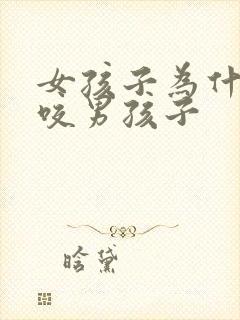 女孩子為什
咬男孩子
晗黛